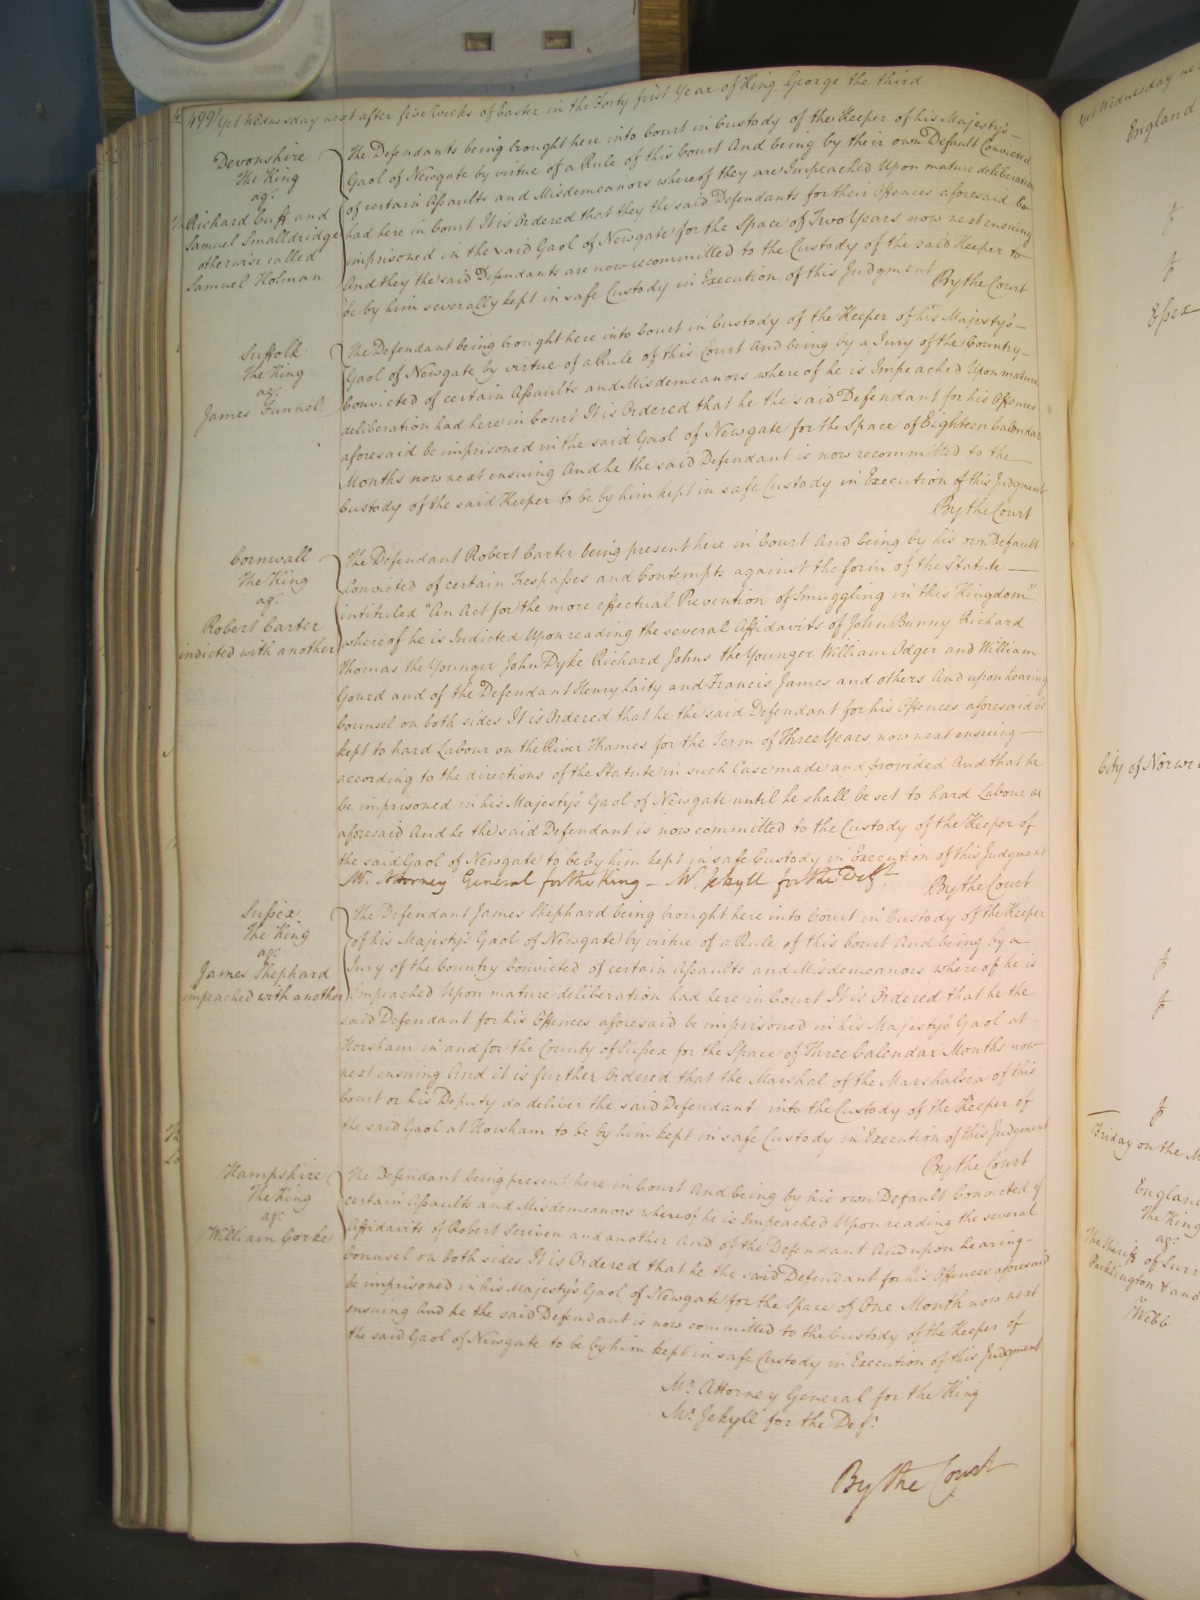 499 / Yet Wednesday next after five Weeks of Easter in the Forty first Year of King George the third
Devonshire
The King
agt.
Richard Cuff and
Samuel Smalldridge
otherwise called
Samuel Holman
The Defendants being brought here into Court in Custody of the Keeper of his Majesty's
Gaol of Newgate by virtue of a Rule of this Court And being by their own Default Convicted
of certain Assaults and Misdemeanors whereof they are Impeached Upon mature deliberation
had here in Court It is Ordered that they the said Defendants for their Offences aforesaid be
imprisoned in the said Gaol of Newgate for the Space of Two Years now next ensuing
And they the said Defendants are now recommitted to the Custody of the said Keeper to
be by him severally kept in safe Custody in Execution of this Judgment By the Court
Suffolk
The King
agt.
James Funnel
The Defendant being brought here into Court in Custody of the Keeper of his Majesty's
Gaol of Newgate by virtue of a Rule of this Court And being by a Jury of the Country
Convicted of certain Assaults and Misdemeanors whereof he is Impeached Upon mature
deliberation had here in Court It is Ordered that he the said Defendant for his Offences
aforesaid be imprisoned in the said Gaol of Newgate for the Space of Eighteen Calendar
Months now next ensuing And he the said Defendant is now recommitted to the
Custody of the said Keeper to be by him kept in safe Custody in Execution of this Judgment
By the Court
Cornwall
The King
agt.
Robert Carter
indicted with another
The Defendant Robert Carter being present here in Court And being by his own Default
Convicted of certain Trespasses and Contempts against the form of the Statute
intituled "An Act for the more effectual Prevention of Smuggling in this Kingdom"
whereof he is Indicted Upon reading the several Affidavits of John Bunny Richard
Thomas the Younger John Dyke Richard Johns the Younger William Odger and William
Goued and of the Defendant Henry Laity and Francis James and others And upon hearing
Counsel on both sides It is Ordered that he the said Defendant for his Offences aforesaid be
kept to hard Labour on the River Thames for the Term of Three Years now next ensuing
according to the directions of the Statute in such Case made and provided And that he
be imprisoned in his Majesty's Gaol of Newgate until he shall be set to hard Labour as
aforesaid And he the said Defendant is now committed to the Custody of the Keeper of
the said Gaol of Newgate to be by him kept in safe Custody in Execution of this Judgment
Mr. Attorney General for the King – Mr. Jekyll for the Deft. By the Court
Sussex
The King
agt.
James Shephard
impeached with another
The Defendant James Shephard being brought here into Court in Custody of the Keeper
of his Majesty's Gaol of Newgate by virtue of a Rule of this Court And being by a
Jury of the Country Convicted of certain Assaults and Misdemeanors whereof he is
Impeached Upon mature deliberation had here in Court It is Ordered that he the
said Defendant for his Offences aforesaid be imprisoned in his Majesty's Gaol at
Horsham in and for the County of Sussex for the Space of Three Calendar Months now
next ensuing And it is further Ordered that the Marshal of the Marshalsea of this
Court or his Deputy do deliver the said Defendant into the Custody of the Keeper of
the said Gaol at Horsham to be by him kept in safe Custody in Execution of this Judgment
By the Court
Hampshire
The King
agt.
William Corke
The Defendant being present here in Court And being by his own Default Convicted of
certain Assaults and Misdemeanors whereof he is Impeached Upon reading the several
Affidavits of Robert Scriven and another And of the Defendant And upon hearing
Counsel on both sides It is Ordered that he the said Defendant for his Offences aforesaid
be imprisoned in his Majesty's Gaol of Newgate for the Space of One Month now next
ensuing And he the said Defendant is now committed to the Custody of the Keeper of
the said Gaol of Newgate to be by him kept in safe Custody in Execution of this Judgment
Mr. Attorney General for the King
Mr. Jekyll for the Deft.
By the Court
Yet Wednesday
England
Essex
City of Norwi
Friday on the M
England
The King
agt.
The Sheriff of Surr
and
Webb